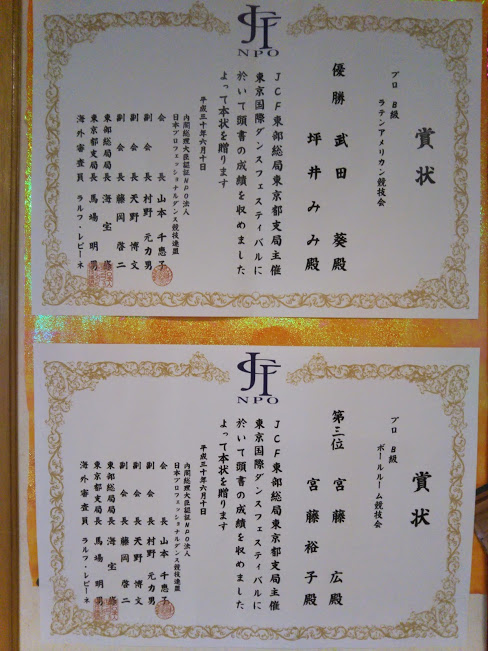 JCF
NPO
賞状
プロ B級
ラテンアメリカン競技会
優勝 武田 葵殿
坪井みみ殿
JCF東部総局東京都支局主催
東京国際ダンスフェスティバルに
於いて頭書の成績を収めました
よって本状を贈ります
平成三十年六月十日
内閣総理大臣認証NPO法人
日本プロフェッショナルダンス競技連盟
会長 山本千恵子
副会長 村野元力男
副会長 天野博文
副会長 藤岡啓二
東部総局局長 海宝
東京都支局長 馬場明男
海外審査員 ラルフ・レピーネ
JCF
NPO
賞状
プロ B級
ボールルーム競技会
第三位 宮藤 広殿
宮藤裕子殿
JCF東部総局東京都支局主催
東京国際ダンスフェスティバルに
於いて頭書の成績を収めました
よって本状を贈ります
平成三十年六月十日
内閣総理大臣認証NPO法人
日本プロフェッショナルダンス競技連盟
会長 山本千恵子
副会長 村野元力男
副会長 天野博文
副会長 藤岡啓二
東部総局局長 海宝
東京都支局長 馬場明男
海外審査員 ラルフ・レピーネ